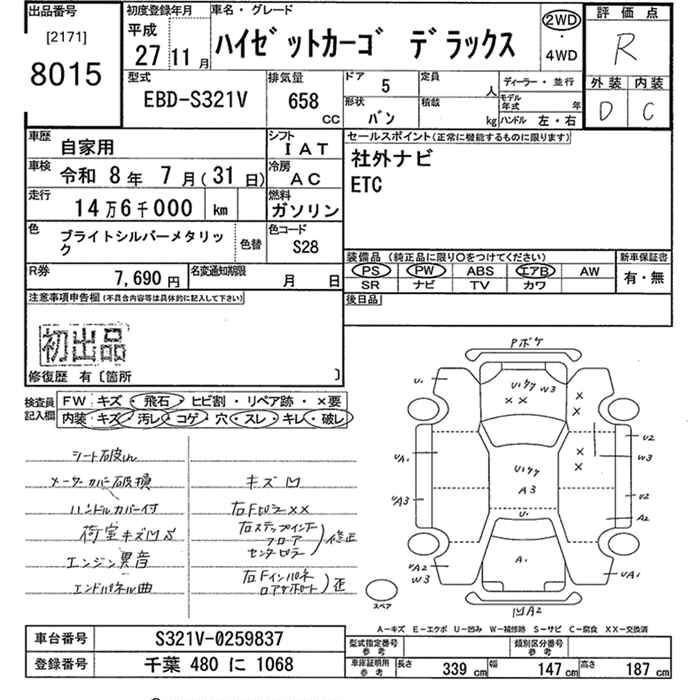 出品番号
[2171]
8015
初度登録年月
平成
27 11 月
車名・グレード
ハイゼットカーゴ デラックス
2WD
・
4WD
評価点
R
外装 内装
D C
型式
EBD-S321V
排気量
658
CC
ドア
5
定員
人
ディーラー・並行
形状
バン
積載
kg
モデル年式 年
ハンドル 左・右
車歴
自家用
シフト
IAT
車検
令和 8年 7月(31日)
冷房
AC
走行
14万6千000 km
燃料
ガソリン
色
ブライトシルバーメタリック
色替
色コード
S28
R券
7,690 円
名変通知期限
月 日
セールスポイント(正常に機能するものに限ります)
社外ナビ
ETC
装備品 (純正品に限り○をつけてください)
PS PW ABS エアB AW
SR ナビ TV カワ
新車保証書
有・無
後日品
注意事項申告欄(不具合内容等は具体的に記入して下さい)
初出品
修復歴 有〔箇所 〕
検査員記入欄
FW キズ・飛石・ヒビ割・リペア跡・×要
内装・キズ・汚レ・コゲ・穴・スレ・キレ・破レ
シート破れ
メーターカバー破損
ハンドルカバー付
荷室キズ凹S
エンジン異音
エンドパネル曲
キズ凹
右Fピラー××
右ステップインナー
フロア
センターピラー
修正
右Fインパネ
ロアサポート
正
Pボケ
U1
U1 ケケ W3
××
×
×
×
×
U2
W3
UA1
U1ケケ
A3
UA3
U2
A2
U1
A1
UA2
W3
UA1
凹A2
スペア
A－キズ E－エクボ U－凹み W－補修跡 S－サビ C－腐食 XX－交換済
車台番号
S321V-0259837
登録番号
千葉 480 に 1068
型式指定番号
参考
類別区分番号
参考
車庫証明用
参考
長さ 339 cm
幅 147 cm
高さ 187 cm